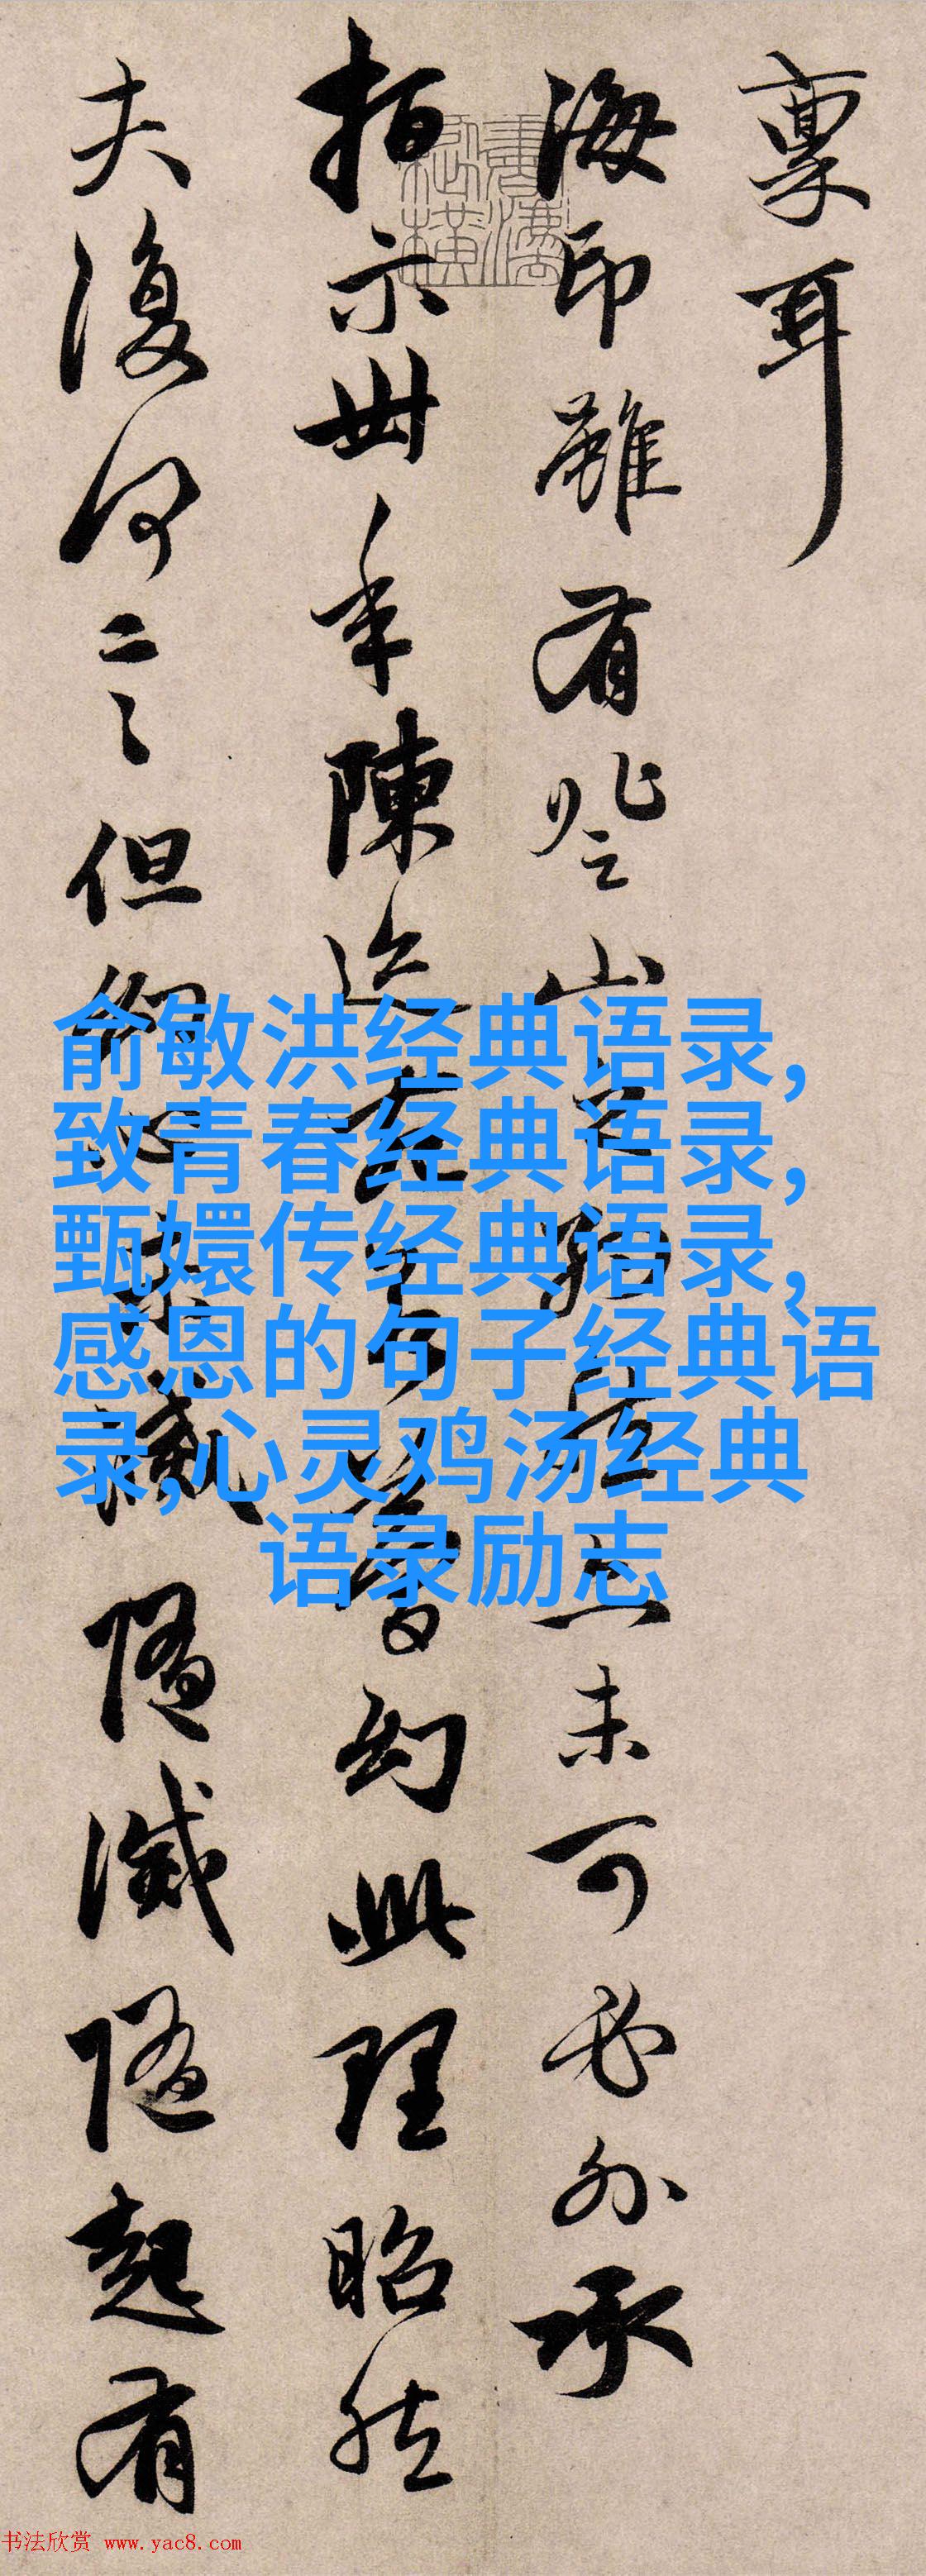 禀耳
海印雖有登山之未可必外承
指示卅年陳迹幻此理昭然
夫復何言但滅隨滅隨起有
俞敏洪经典语录,
致青春经典语录,
甄嬛传经典语录,
感恩的句子经典语
录,心灵鸡汤经典
语录励志
书法欣赏 www.yac8.com